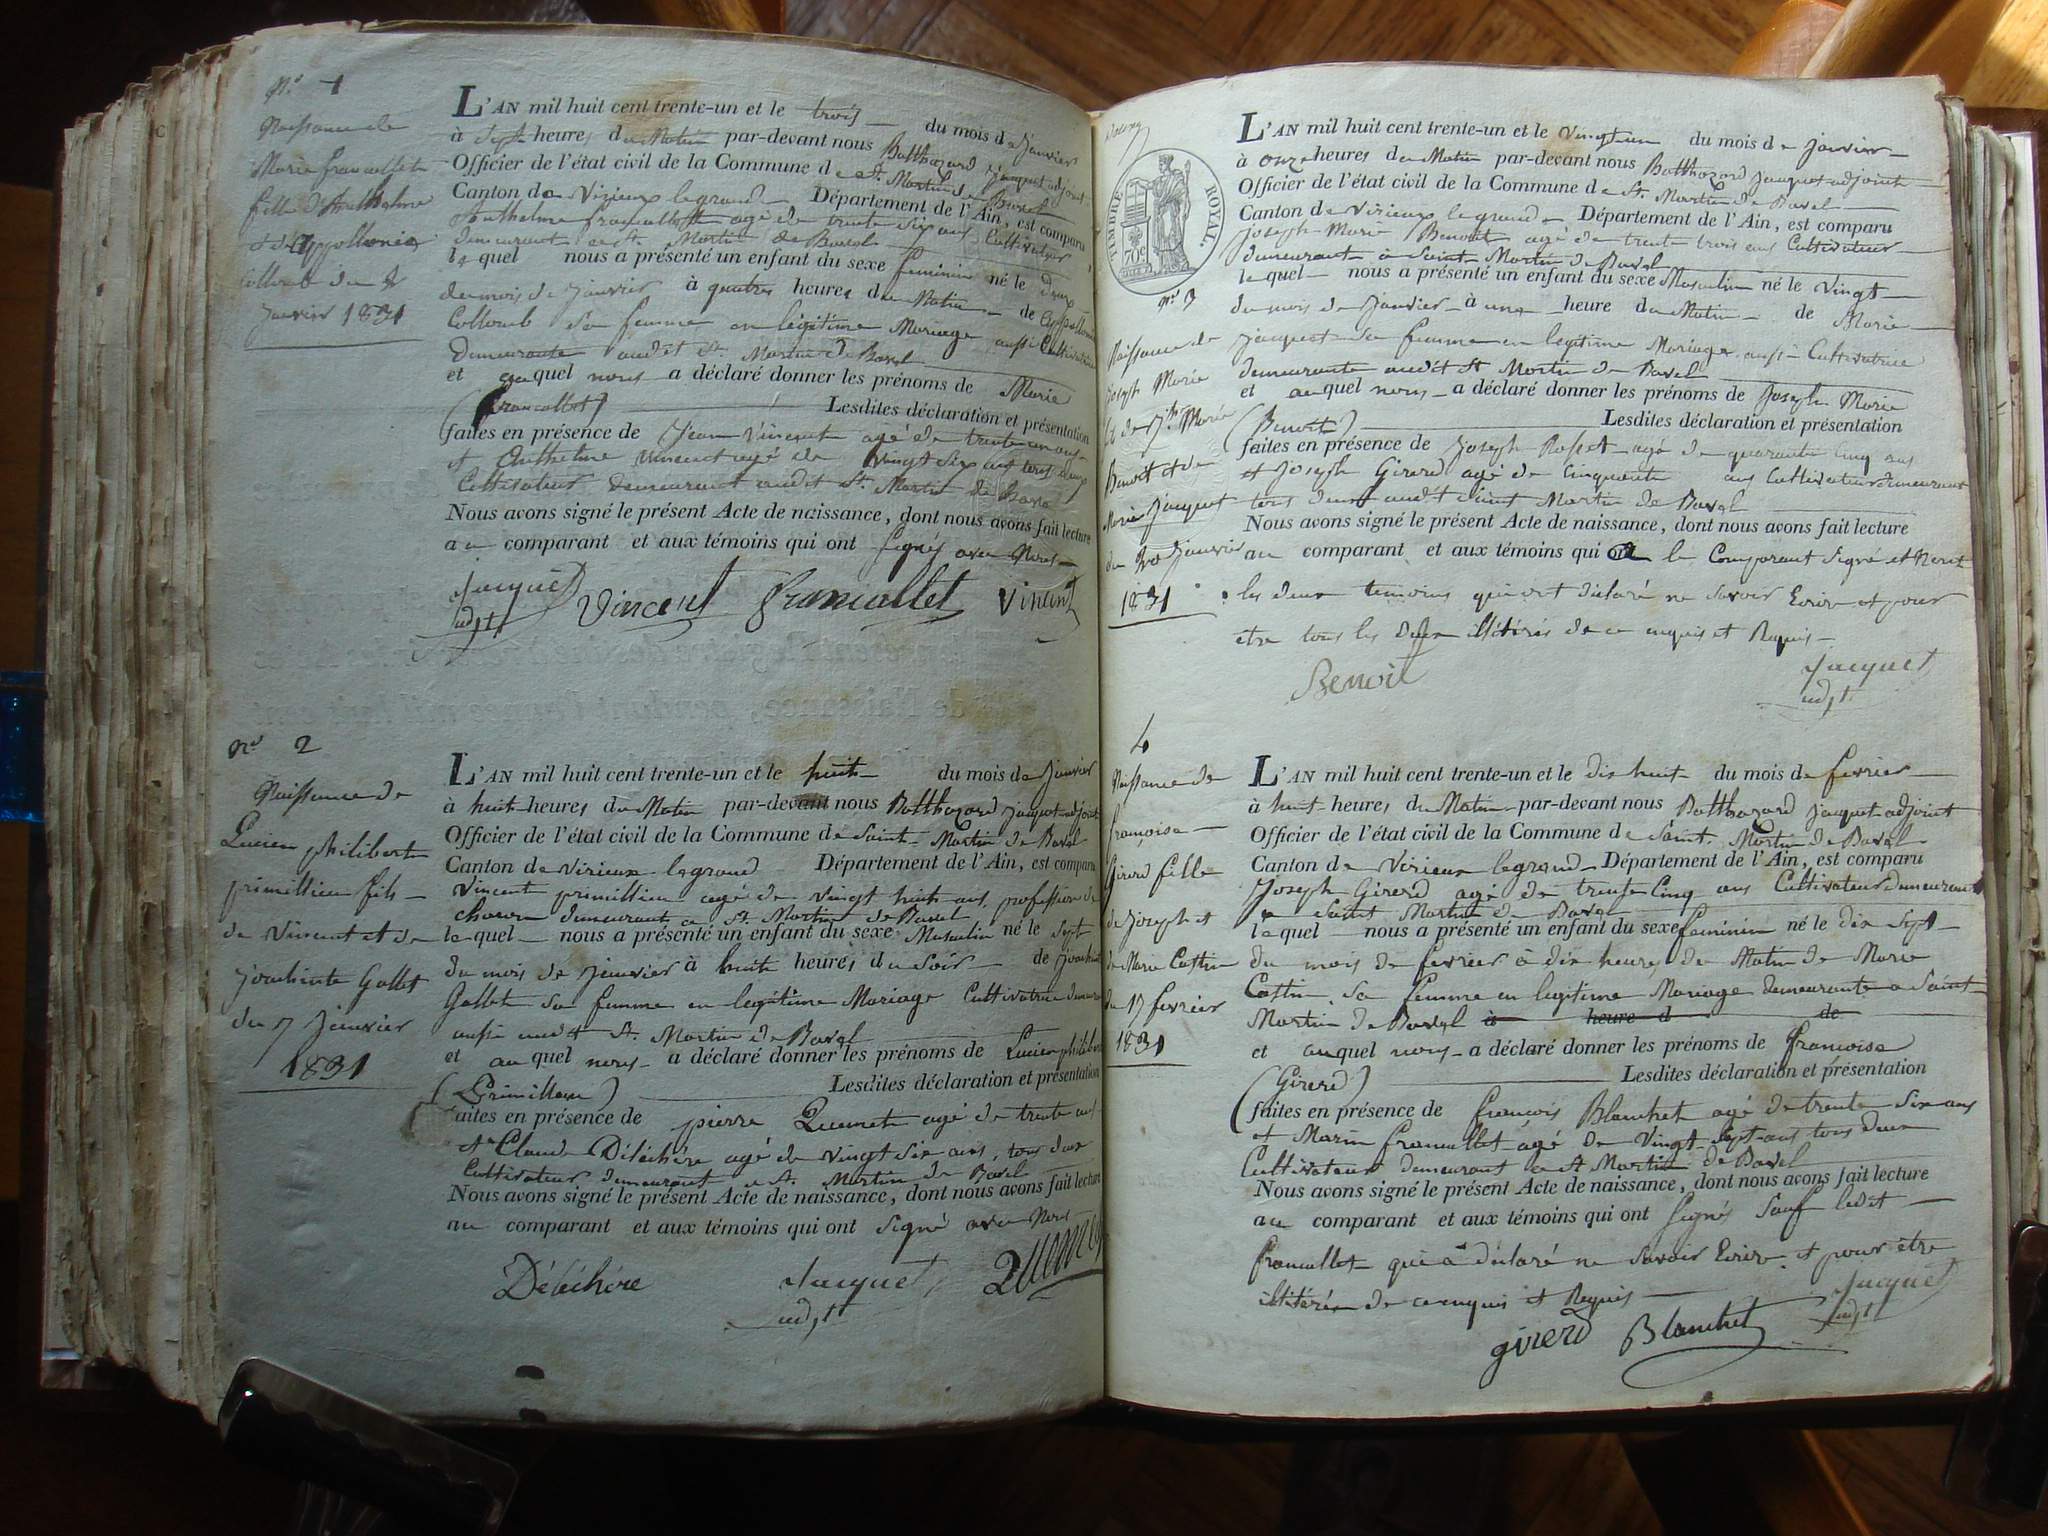 Nº 1
Naissance de
Marie francallet
fille d'Anthelme
et d'Appollonie
Collomb du 2
Janvier 1831
L'AN mil huit cent trente-un et le trois du mois de Janvier
à sept heures du Matin par-devant nous Balthazard Jacquet adjoint
Officier de l'état civil de la Commune de St. Martin de Bavel
Canton de Virieux legrand Département de l'Ain, est comparu
Anthelme francallet agé de trente six ans Cultivateur
demeurant à St. Martin de Bavel
lequel nous a présenté un enfant du sexe feminin né le deux
du mois de Janvier à quatres heures du Matin de Appollonie
Collomb sa femme en légitime Mariage aussi Cultivatrice
demeurante audit St. Martin de Bavel
et auquel nous a déclaré donner les prénoms de Marie
(francallet) Lesdites déclaration et présentation
faites en présence de Jean Vincent agé de trente un ans
et Anthelme Vincent agé de Vingt Six ans tous deux
Cultivateurs demeurant audit St. Martin de Bavel
Nous avons signé le présent Acte de naissance, dont nous avons fait lecture
au comparant et aux témoins qui ont signés avec Nous
Jacquet Vincent francallet Vincent
adjt
Nº 2
Naissance de
Lucien philibert
primillieu fils
de Vincent et de
Joachinte Gallet
du 7 Janvier
1831
L'AN mil huit cent trente-un et le huit du mois de Janvier
à huit heures du Matin par-devant nous Balthazard Jacquet adjoint
Officier de l'état civil de la Commune de Saint Martin de Bavel
Canton de Virieux legrand Département de l'Ain, est comparu
Vincent primillieu agé de vingt huit ans, profession de
charon demeurant a St. Martin de Bavel
lequel nous a présenté un enfant du sexe Masculin né le sept
du mois de Janvier à huit heures du Soir de Joachinte
Gallet sa femme en legitime Mariage Cultivatrice
aussi audit St. Martin de Bavel
et auquel nous a déclaré donner les prénoms de Lucien philibert
(Primillieu) Lesdites déclaration et présentation
faites en présence de pierre Quemet agé de trente ans
et Claude Déléchère agé de vingt Six ans, tous deux
Cultivateurs demeurant a St. Martin de Bavel
Nous avons signé le présent Acte de naissance, dont nous avons fait lecture
au comparant et aux témoins qui ont signé avec Nous
Déléchère Jacquet
adjt
TIMBRE ROYAL.
70c
nº 3
Naissance de
Joseph Marie
fils de Jh Marie
Benoit et de
Marie Jacquet
du 20 Janvier
1831
L'AN mil huit cent trente-un et le Vingt-un du mois de Janvier
à onze heures du Matin par-devant nous Balthazard Jacquet adjoint
Officier de l'état civil de la Commune de St. Martin de Bavel
Canton de Virieux legrand Département de l'Ain, est comparu
Joseph-Marie Benoit agé de trente trois ans Cultivateur
demeurant à Saint-Martin de Bavel
lequel nous a présenté un enfant du sexe Masculin né le Vingt
du mois de Janvier à une heure du Matin de Marie
Jacquet sa femme en legitime Mariage aussi Cultivatrice
demeurante audit St Martin de Bavel
et auquel nous a déclaré donner les prénoms de Joseph Marie
(Benoit) Lesdites déclaration et présentation
faites en présence de Joseph Rosset agé de quarante Cinq ans
et Joseph Girerd agé de Cinquante ans Cultivateurs demeurant
tous deux audit Saint Martin de Bavel
Nous avons signé le présent Acte de naissance, dont nous avons fait lecture
au comparant et aux témoins qui le Comparant signé et Non
les deux temoins qui ont déclaré ne savoir Ecrire et pour
etre tous les deux illitérés de ce enquis et Requis
Benoit Jacquet
adjt
4
Naissance de
françoise
Girerd fille
de Joseph et
de Marie Cottin
du 17 fevrier
1831
L'AN mil huit cent trente-un et le dix huit du mois de fevrier
à huit heures du Matin par-devant nous Balthazard Jacquet adjoint
Officier de l'état civil de la Commune de Saint Martin de Bavel
Canton de Virieux legrand Département de l'Ain, est comparu
Joseph Girerd agé de trente Cinq ans Cultivateur demeurant
a Saint Martin de Bavel
lequel nous a présenté un enfant du sexe feminin né le dix sept
du mois de fevrier à dix heures du Matin de Marie
Cottin, sa femme en legitime Mariage demeurante a Saint
Martin de Bavel à heure d de
et auquel nous a déclaré donner les prénoms de françoise
(Girerd) Lesdites déclaration et présentation
faites en présence de françois Blanchet agé de trente Six ans
et Marin francallet agé de Vingt Sept ans tous deux
Cultivateurs demeurant a St Martin de Bavel
Nous avons signé le présent Acte de naissance, dont nous avons fait lecture
au comparant et aux témoins qui ont signés Sauf ledit
francallet qui a déclaré ne savoir Ecrire et pour être
illitéré de ce enquis et Requis Jacquet
girerd Blanchet adjt